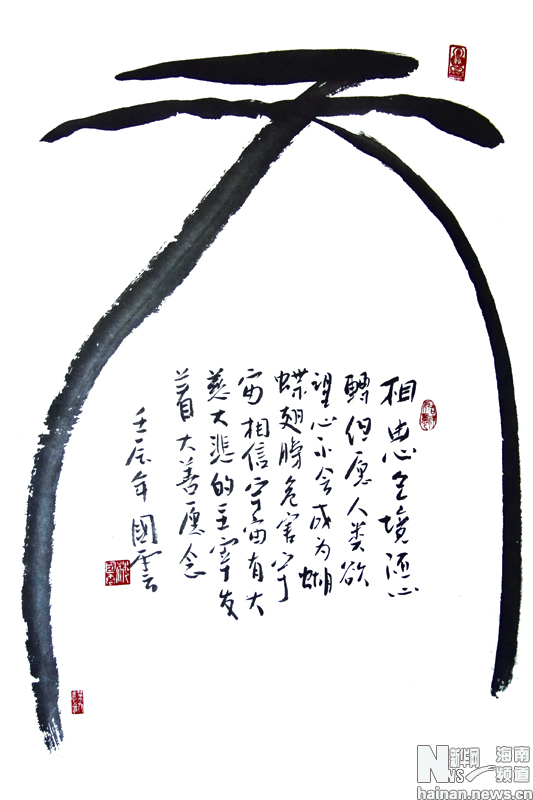 天
相由心生境随心
轉但愿人类欲
望心不会成为蝴
蝶翅膀危害宇
宙相信宇宙有大
慈大悲的主宰发
着大善愿念
壬辰年 國雲
NEWS 新华网 海南频道
hainan.news.cn